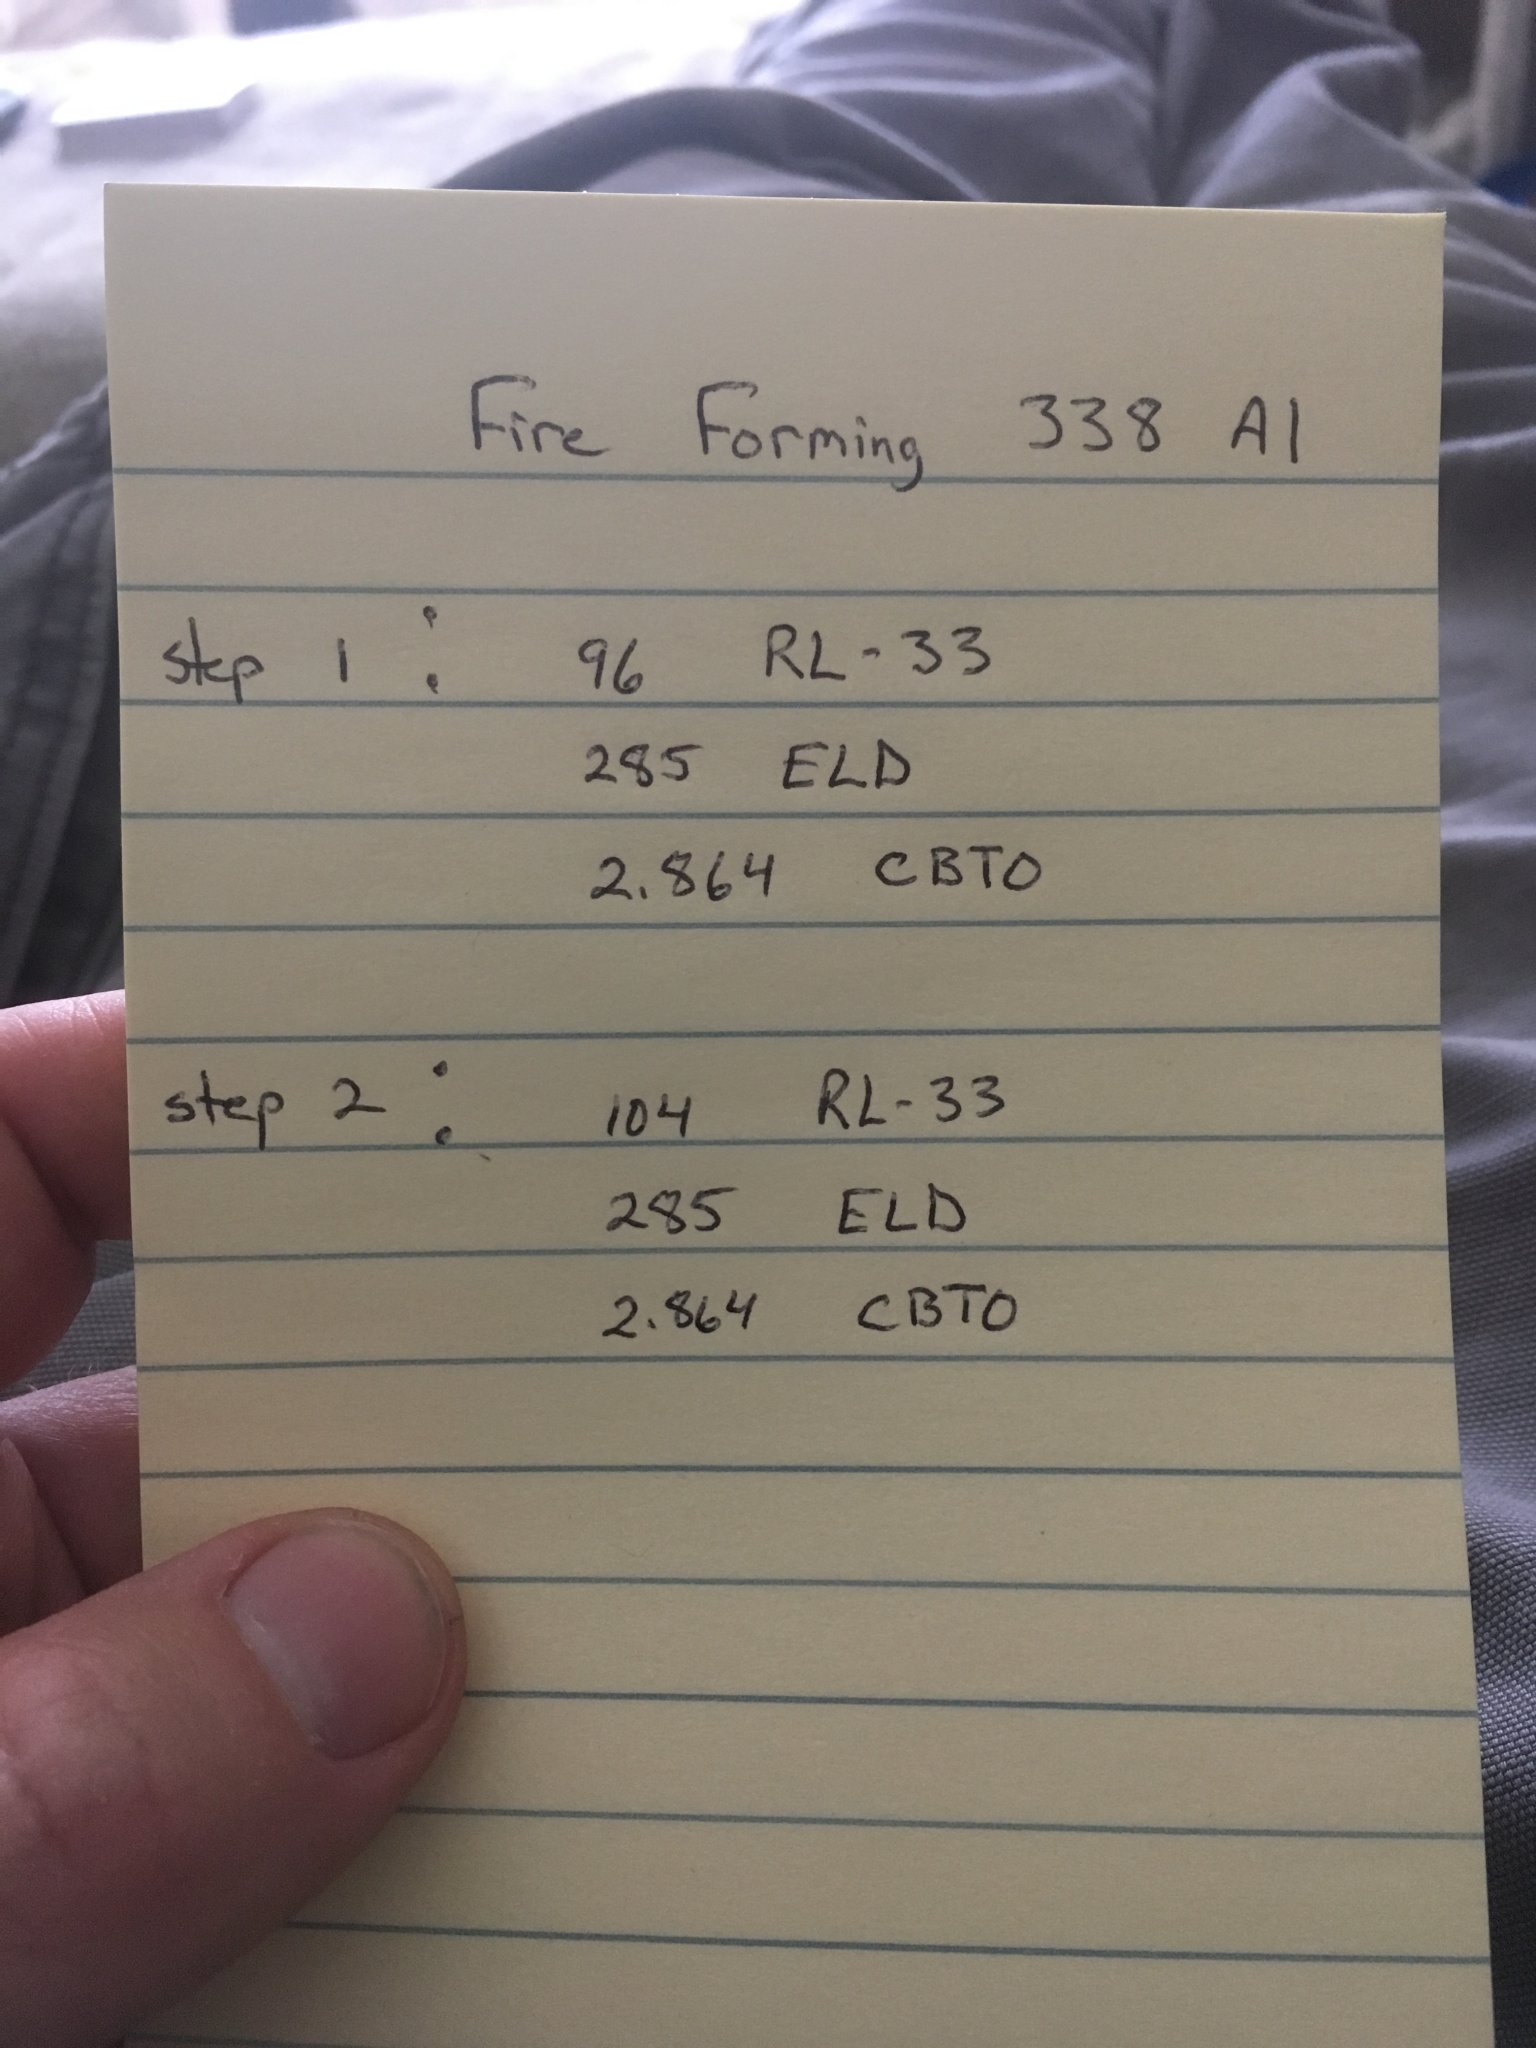 Fire Forming 338 AI
step 1: 96 RL-33
285 ELD
2.864 CBTO
step 2: 104 RL-33
285 ELD
2.864 CBTO